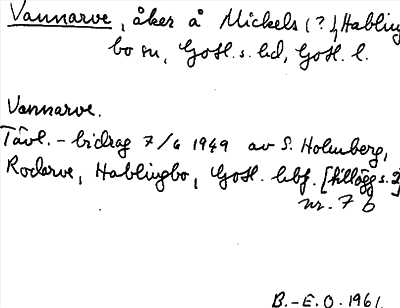 Vannarve, åker å Mickels (?), Habling
bo sn, Gotl. s. hd, Gotl. l.
Vannarve.
Tävl.-bidrag 7/6 1949 av S. Holmberg,
Rodarve, Hablingbo, Gotl. hbf. [tillägg s. 2]
nr. 7 b
B.-E. O. 1961.